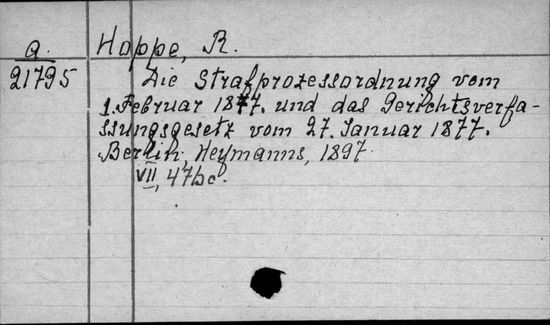 a.
21795
Hoppe, R.
Die Strafprozessordnung vom
1. Februar 1877. und das Gerichtsverfa-
ssungsgesetz vom 27. Januar 1877.
Berlin, Heymanns, 1897.
VII, 47 bc.